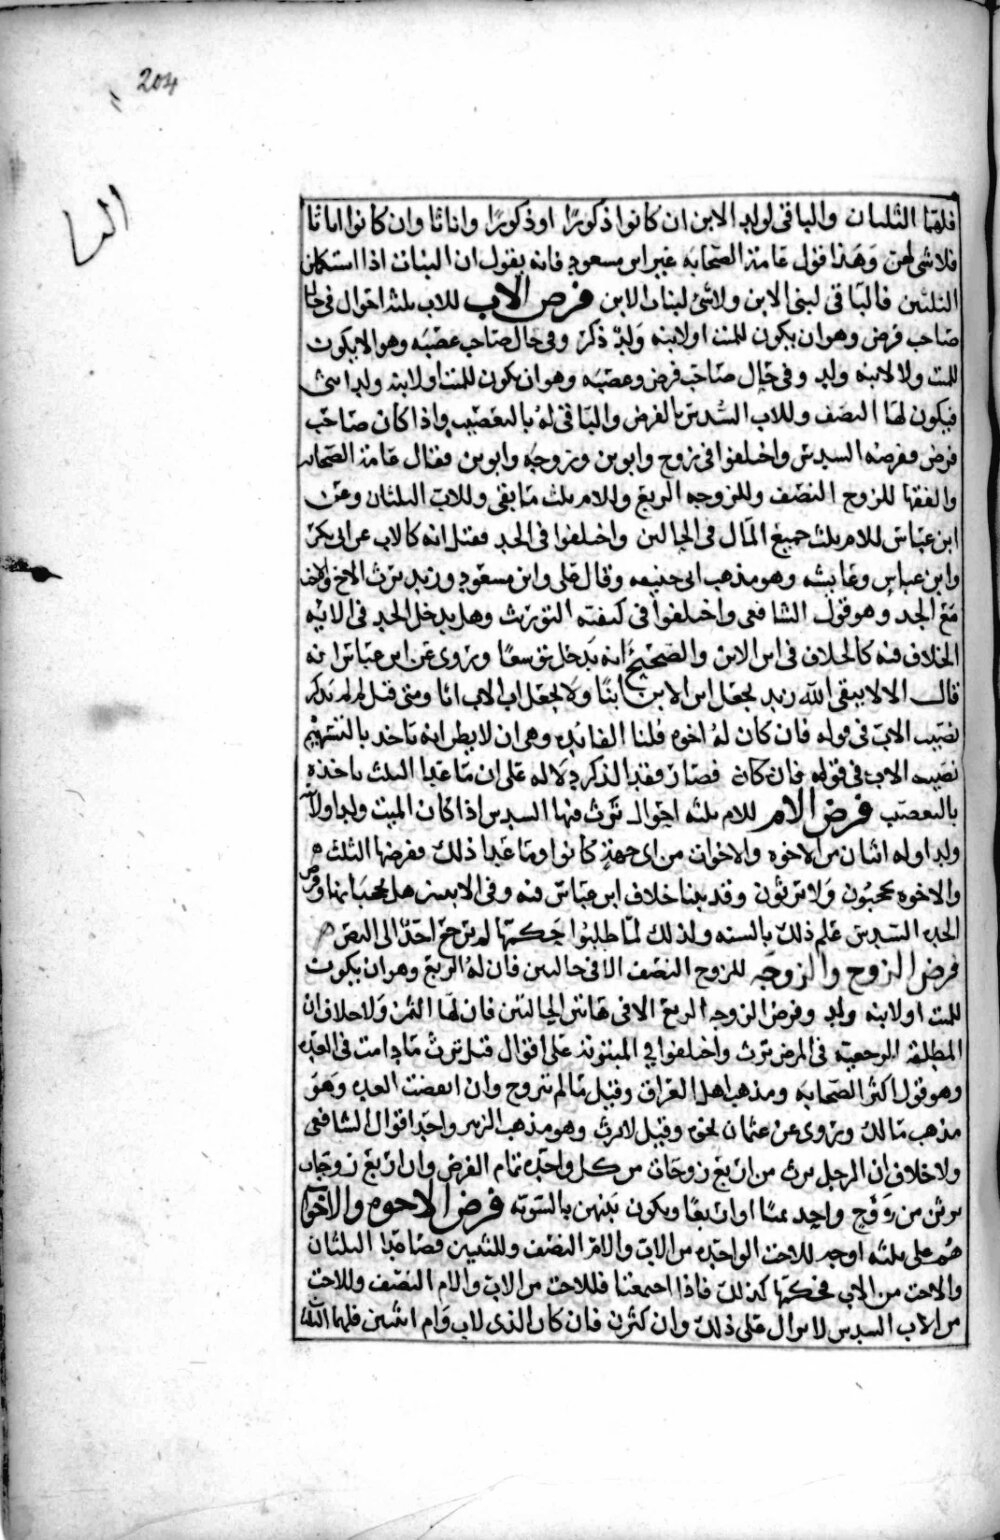 204
فلهما الثلثان والباقى لولد الابن ان كانوا ذكورًا او ذكورًا واناثا وان كانوا اناثا
فلا شى لهن وهذا قول عامة الصحابه غير ابن مسعود فانه يقول ان البنات اذا استكملن
الثلثين فالباقى لبنى الابن ولا شئ لبنات الابن فرض الاب للاب ثلثه احوال فى حال
صاحب فرض وهو ان يكون للميت او لابنه ولد ذكر وفى حال صاحب عصبه وهو الا يكون
للميت ولا لابنه ولد وفى حال صاحب فرض وعصبه وهو ان يكون للميت او لابنه ولد انثى
فيكون لها النصف وللاب السُّدس بالفرض والباقى له بالتعصيب واذا كان صاحب
فرض ففرضه السدس واختلفوا فى زوج وابوين وزوجه وابوين فقال عامة الصحابه
والفقها للزوج النصف وللزوجه الربع وللام ثلث ما بقى وللاب الثلثان وعن
ابن عباس للام ثلث جميع المال فى الحالين واختلفوا فى الجد فقيل انه كالاب عن ابى بكر
وابن عباس وعايشه وهو مذهب ابى حنيفه وقال على وابن مسعود وزيد يرث الاخ والاخت
مع الجد وهو قول الشافعى واختلفوا فى كيفية التوريث وهل يدخل الجد فى الايه
الخلاف فيه كالخلاف فى ابن الابن والصحيح انه يدخل توسعًا ويروى عن ابن عباس انه
قال الا لا يتقى الله زيد يجعل ابن الابن ابنًا ولا يجعل اب الاب ابا ومتى قيل لم لم يذكر
نصيب الاب فى قوله فان كان له اخوه قلنا الفائده وهى ان لا يظن انه ياخذ بالتسهيم
نصيب الاب فى قوله فان كان فصار فقد الذكر دلاله على ان ما عدا الثلث ياخذه
بالتعصيب فرض الام للام ثلثه احوال ترث فيها السدس اذا كان للميت ولد او لابنه
ولد او له اثنان من الاخوه والاخوات من اى جهة كانوا وما عدا ذلك ففرضها الثلث
والاخوه يحجبون ولا يرثون وقد بينا خلاف ابن عباس فيه وفى الابنين هل يحجبانها وفرض
الجده السدس علم ذلك بالسنه ولذلك لما طلبوا حكمها لم يرجع احد الى النص
فرض الزوج والزوجه للزوج النصف الا فى حالين فان له الربع وهو ان يكون
للميت او لابنه ولد وفرض الزوجه الربع الا فى هاتين الحالتين فان لها الثمن ولا خلاف ان
المطلقه الرجعيه فى المرض ترث واختلفوا فى المبتوته على اقوال قيل ترث ما دامت فى العده
وهو قول اكثر الصحابه ومذهب اهل العراق وقيل ما لم تتزوج وان انقضت العده وهو
مذهب مالك ويروى عن عثمان نحوه وقيل لا ترث وهو مذهب الزهرى واحد اقوال الشافعى
ولا خلاف ان الرجل يرث من اربع زوجات من كل واحده تمام الفرض وان اربع زوجات
يرثن من زوج واحد ثمنًا او ربعًا ويكون بينهن بالسويه فرض الاخوه والاخوات
هم على ثلثه اوجه للاخت الواحده من الاب والام النصف وللثنتين فصاعدا الثلثان
والاخت من الاب فحكمها كذلك فاذا اجتمعتا فللاخت من الاب والام النصف وللاخت
من الاب السدس لا يزال على ذلك وان كثرن فان كان الذى لاب وام اثنتين فلهما الثلثان